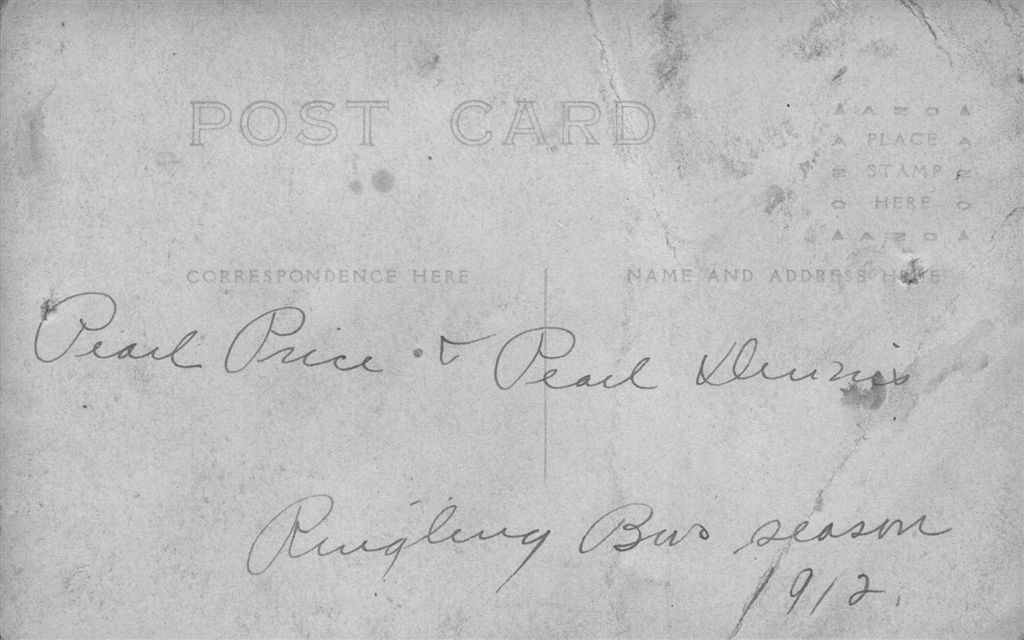 POST CARD
▲ A Z O ▲
▲ PLACE ▲
N STAMP N
O HERE O
▲ A Z O ▲
CORRESPONDENCE HERE
NAME AND ADDRESS HERE
Pearl Price & Pearl Dennis
Ringling Bros season
1912.